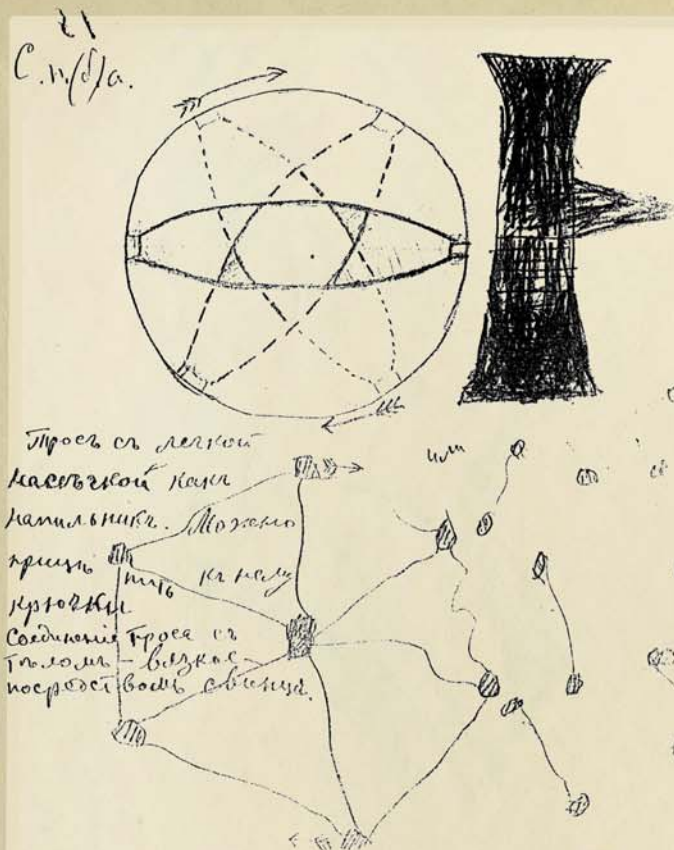 21
С.н.(б)а.
Тросъ съ легкой
насѣчкой какъ
или
напильникъ. Можно
прицѣпить къ нему
крючки
Соединеніе троса съ
тѣломъ – вязкое –
посредствомъ свинца.